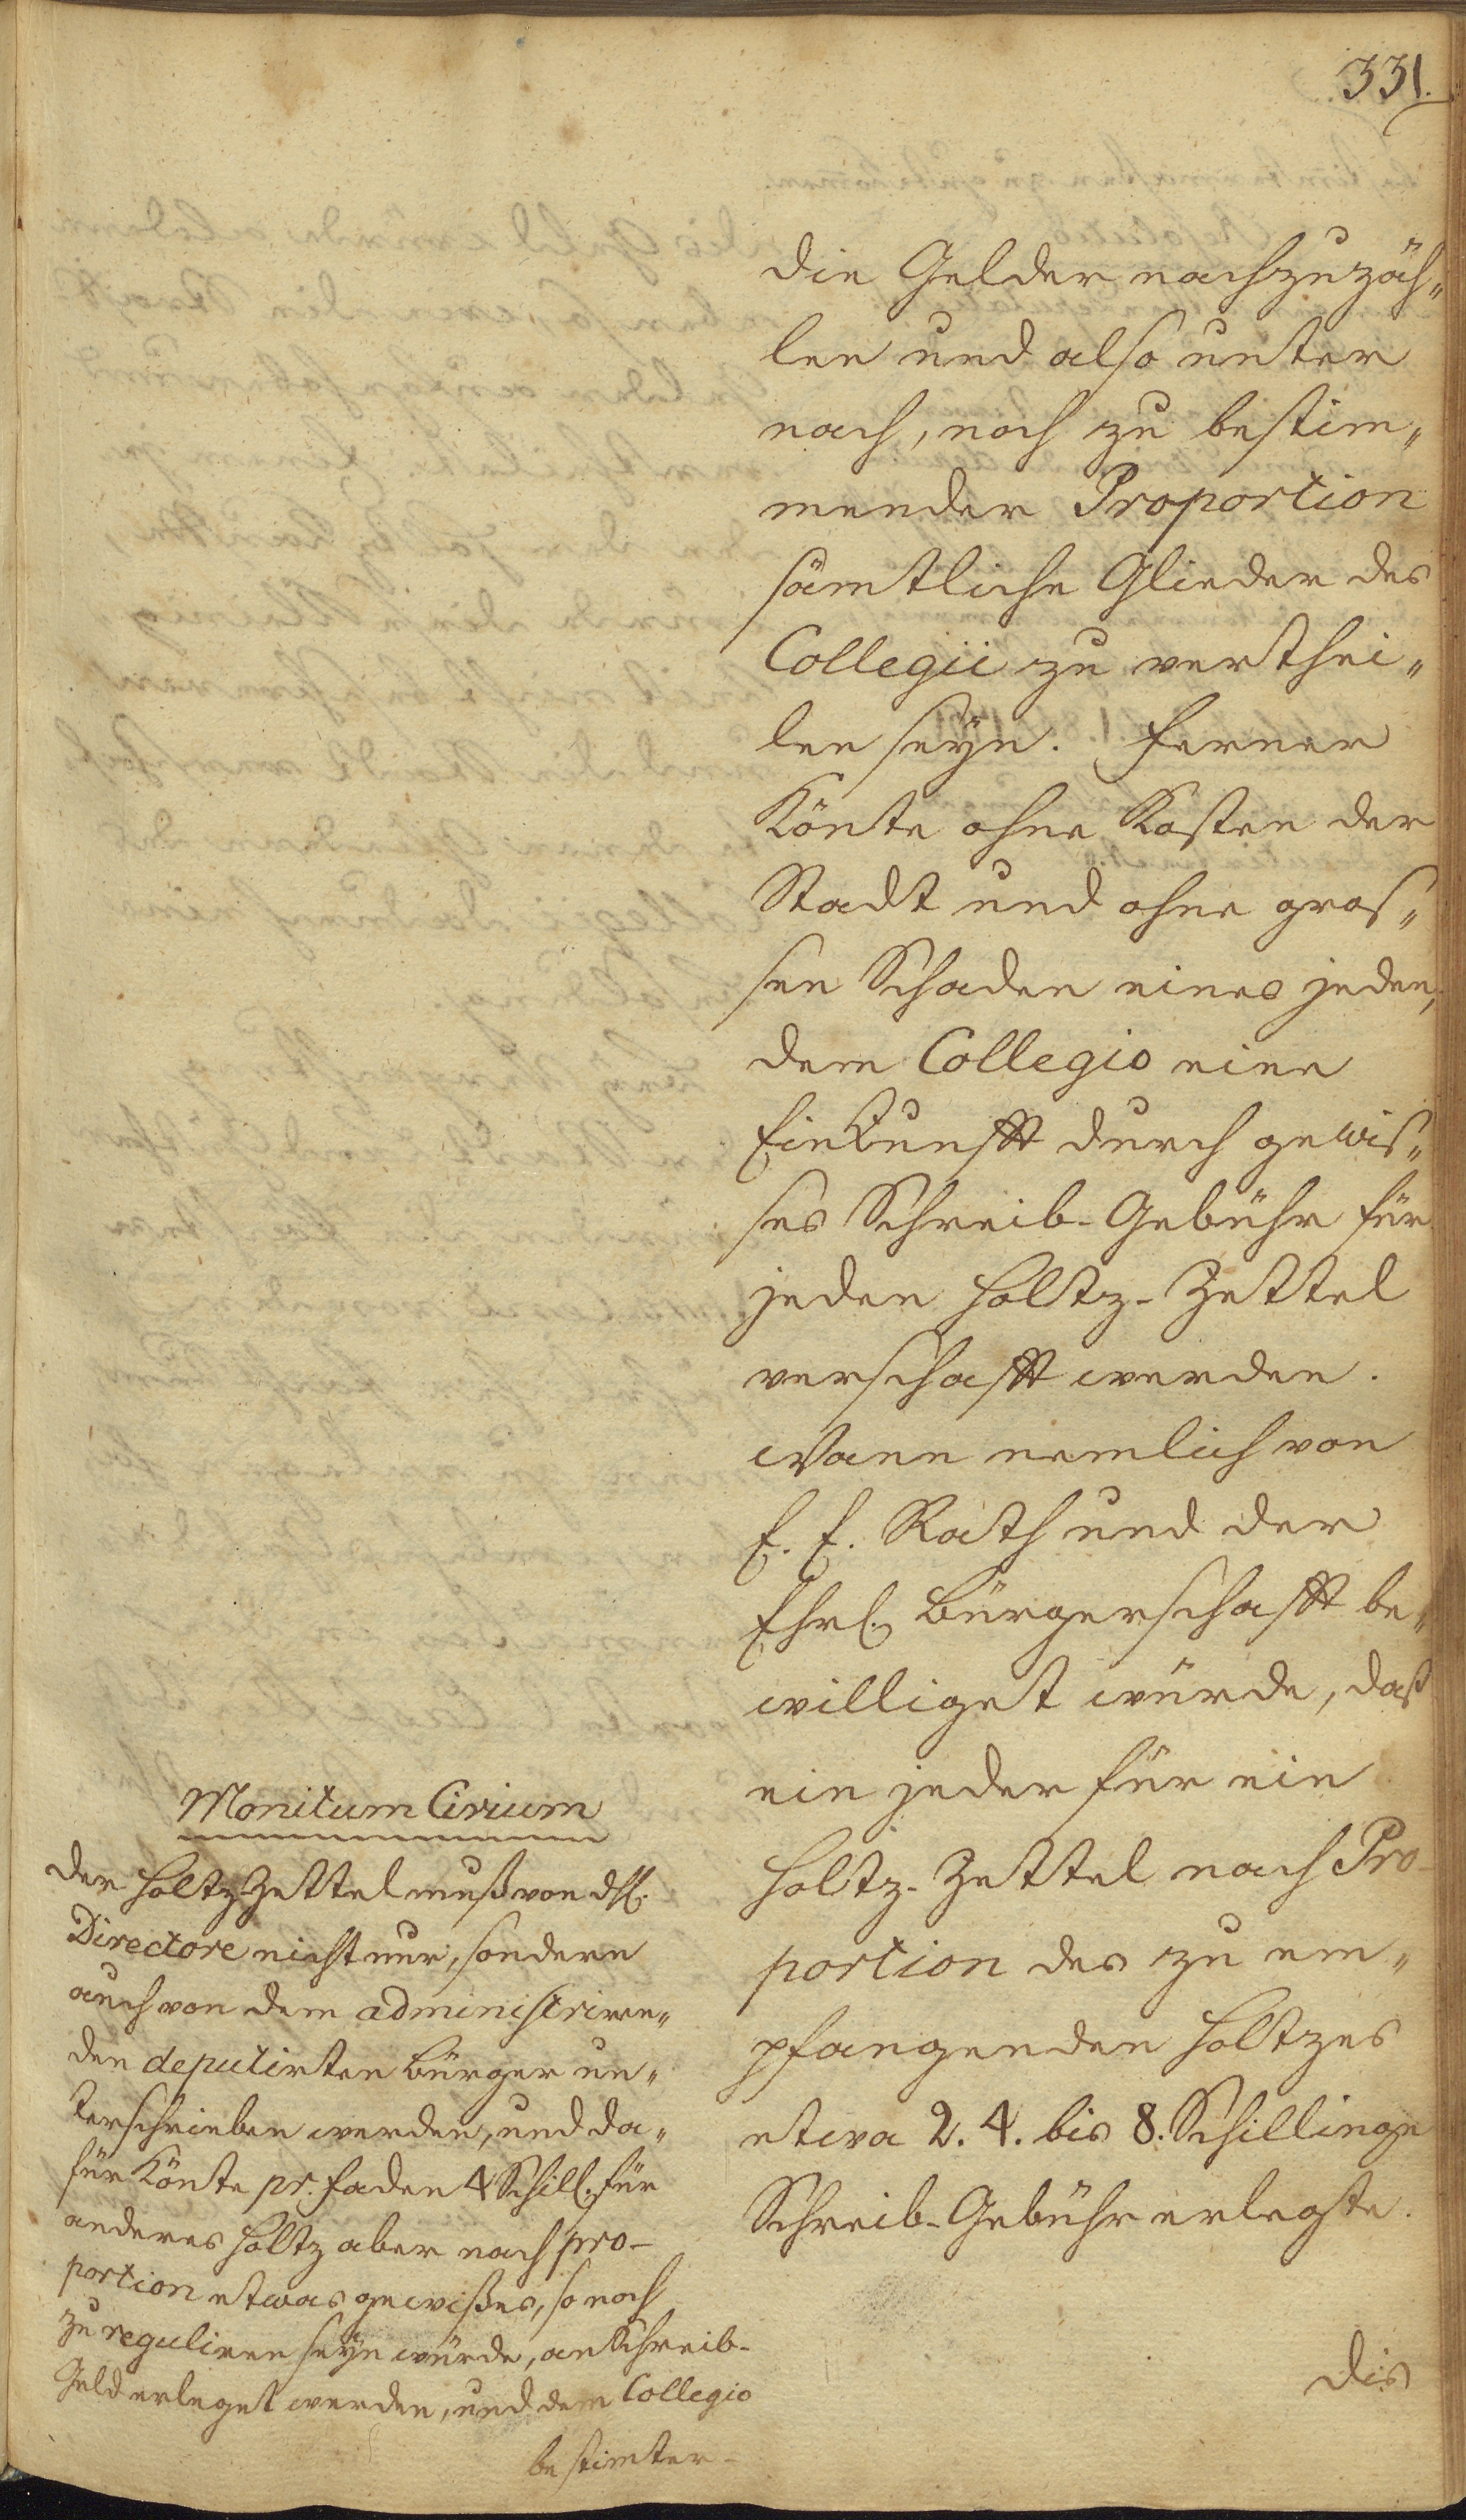 331.
die Gelder nachzuzäh„
len und also unter
nach, noch zu bestim„
mender Proportion
sämtliche Glieder des
Collegii zu verthei„
len seÿn. Ferner
könte ohne Kosten der
Stadt und ohne gros„
sen Schaden eines jeden,
dem Collegio eine
Einkunfft durch gewis„
ses Schreib-Gebühr für
jeden Holtz-Zettel
verschafft werden.
Wann nemlich von
E. E. Rath und der
Ehrl. Bürgerschafft be„
williget würde, daß
ein jeder für ein
Holtz-Zettel nach Pro-
portion des zu em„
pfangenden Holtzes
etwa 2. 4. bis 8. Schillinge
Schreib-Gebühr erlegte.
Dis
Monitum Civium
Der Holtz-Zettel muß von
Directore nicht nur, sondern
auch von dem administriren„
den deputirten Bürger un„
terschrieben werden, und da„
für könte pr. Faden 4 Schill. für
anderes Holtz aber nach pro-
portion etwas gewißes, so noch
zu reguliren seÿn würde, an Schreib-
Geld erleget werden, und dem Collegio
bestimter-